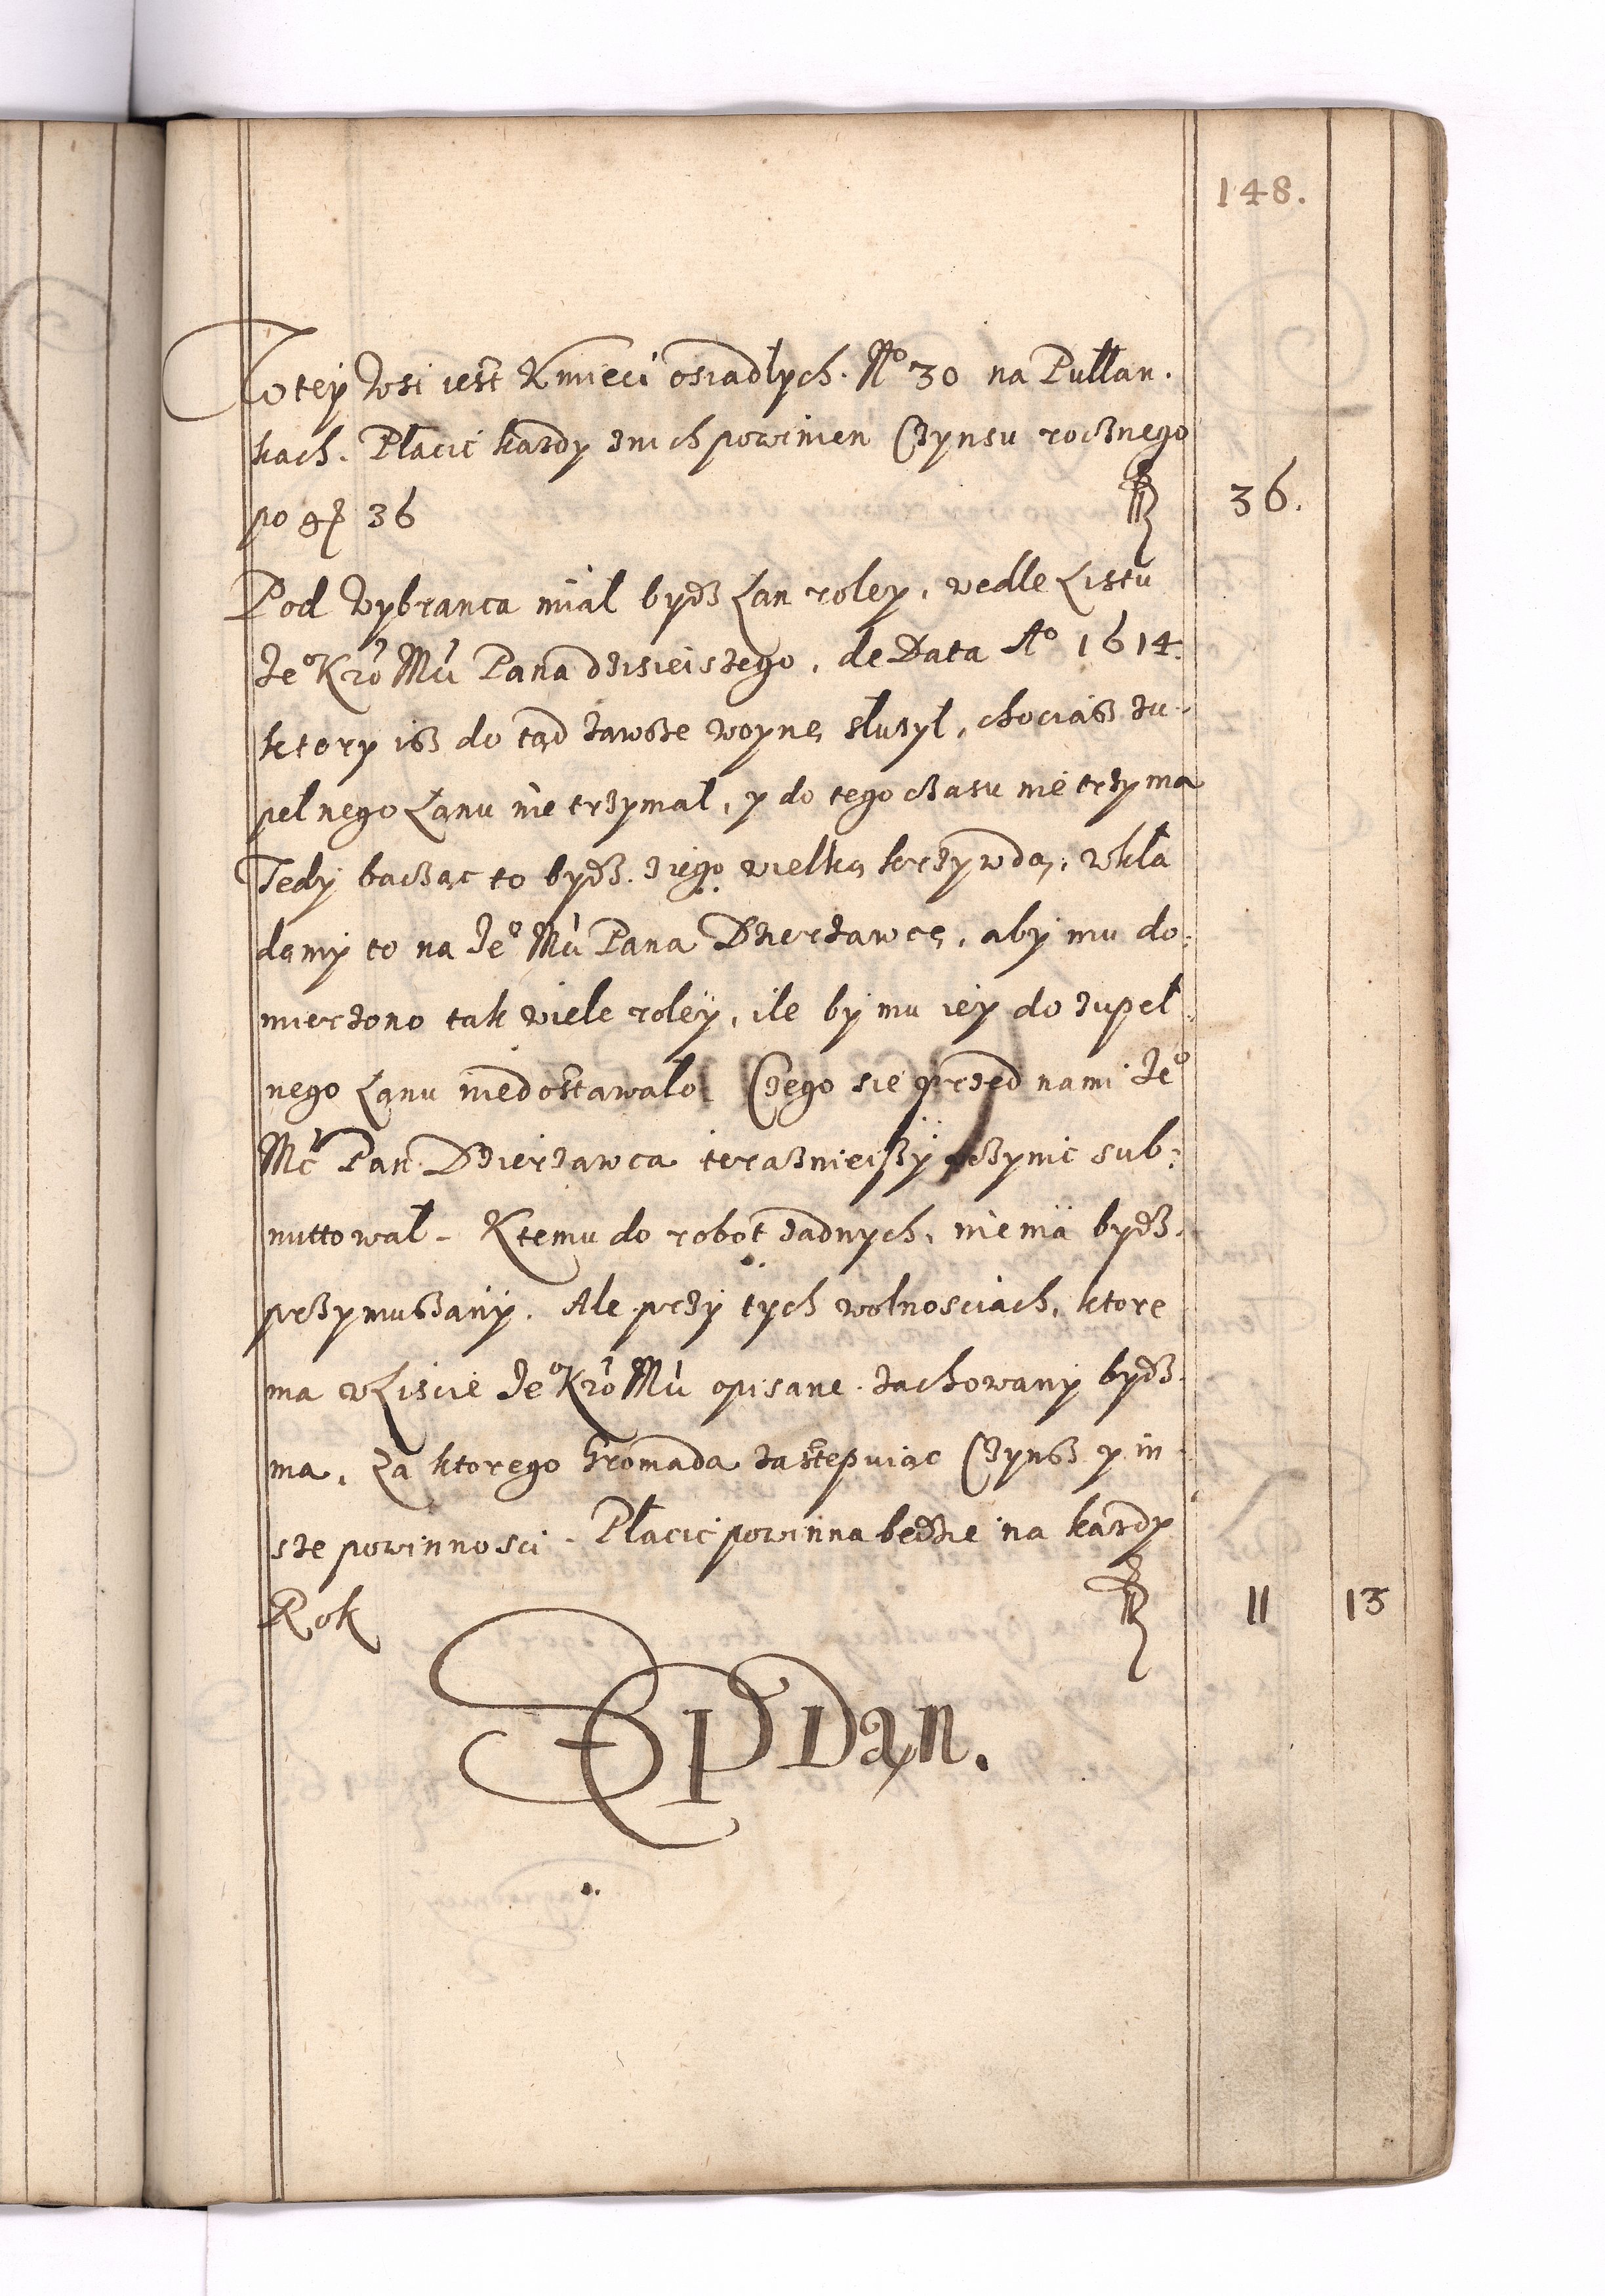 148.
W tey Wsi iest Kmieci osiadłych. No 30 na Pułłan.
kach. Płacić kazdy znich powinien Czynsu rocznego
po gr 36 36.
Pod Wybranca miał bydź Łan roley, wedle Listu
Jeo Kro Mci Pana dzisieiszego, de Data Ao 1614.
ktory isz do tąd zawsze woynę słuzył, chociasz zu-
pełnego Łanu nie trzymał, y do tego czasu nie trzyma
Tedy bacząc to bydź z iego wielką krzywdą, wkła
damy to na Jeo Mci Pana Dzierzawcę, aby mu do:
mierzono tak wiele roley, ile by mu iey do zupeł:
nego Łanu niedostawało Czego sie przed nami Jeo
Mć Pan Dzierzawca teraznieiszy uczynic sub:
mittował. Ktemu do robot zadnych, niema bydź
przymuszany. Ale przy tych wolnosciach, ktore
ma w Liscie Jeo Kro Mci opisane. zachowany bydź
ma. Za ktorego Gromada zastępuiąc Czynsz y in
sze powinnosci. Płacic powinna będzie na kazdy
Rok 11 13
Żupdan.